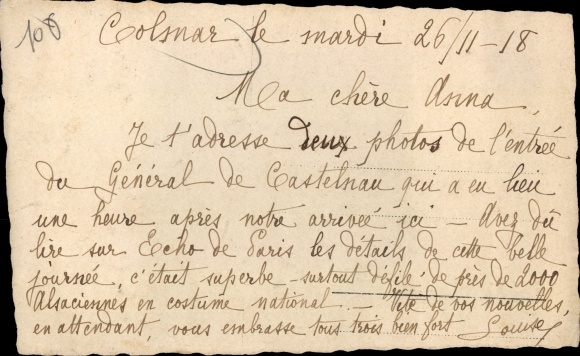 108
Colmar le mardi 26/11-18
Ma chère Anna,
Je t'adresse deux photos de l'entrée
du Général de Castelnau qui a eu lieu
une heure après notre arrivée ici - Avez dû
lire sur Echo de Paris les détails de cette belle
journée, c'était superbe - surtout défilé de près de 2000
Alsaciennes en costume national. - Vite de vos nouvelles,
en attendant, vous embrasse tous trois bien fort - Louise